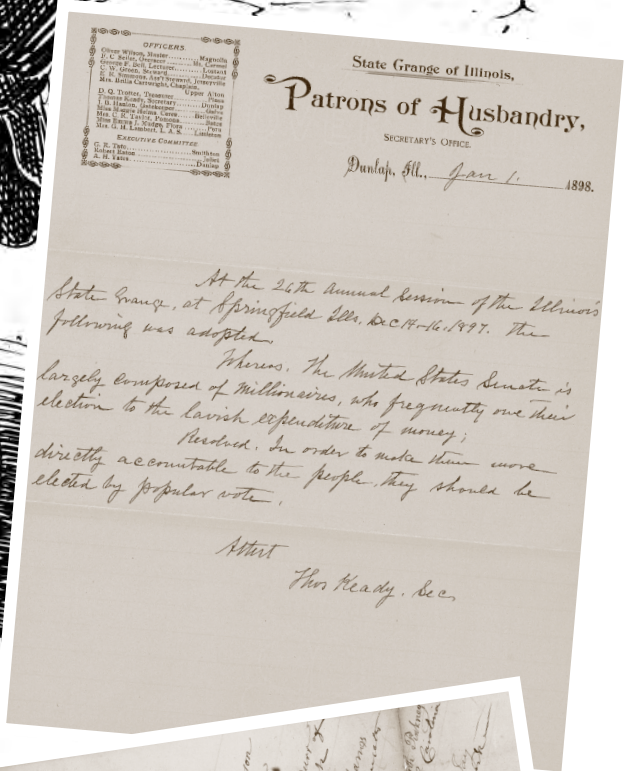 OFFICERS.
Oliver Wilson, Master........Magnolia
P. C. Beller, Overseer........Mt. Carmel
George F. Bell, Lecturer........Lostant
C. W. Green, Steward........Decatur
E. N. Simmons, Ass't Steward, Jerseyville
Mrs. Hollis Cartwright, Chaplain,
Upper Alton
D. Q. Trotter, Treasurer........
Thomas Keady, Secretary........Dunlap
J. B. Hanlon, Gatekeeper........
Miss Maggie Helms, Ceres........Belleville
Mrs. C. R. Taylor, Pomona........
Miss Emma J. Mudge, Flora........Peru
Mrs. G. H. Lambert, L. A. S.
EXECUTIVE COMMITTEE.
G. R. Tate........Smithton
Robert Eaton........Joliet
A. H. Yates........Dunlap
State Grange of Illinois,
Patrons of Husbandry,
SECRETARY'S OFFICE.
Dunlap, Ill., Jan 1. 1898.
At the 26th Annual Session of the Illinois
State Grange, at Springfield Ills, Dec 14-16, 1897. the
following was adopted.
Whereas. The United States Senate is
largely composed of Millionaires, who frequently owe their
election to the lavish expenditure of money;
Resolved. In order to make them more
directly accountable to the people, they should be
elected by popular vote.
Attest
Thos Keady. Sec.